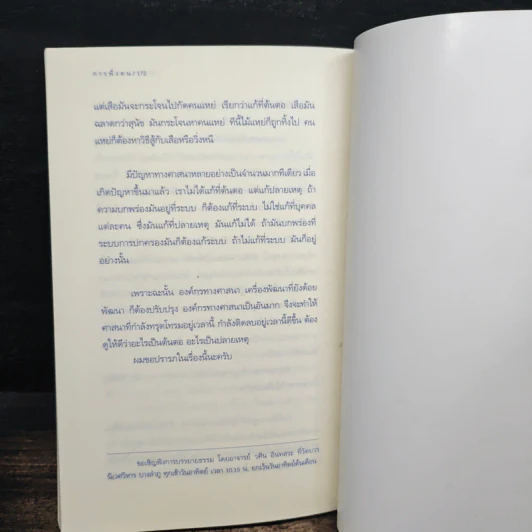 การพึ่งตน/175
แต่เสือมันจะกระโจนไปกัดคนแหย่ เรียกว่าแก้ที่ต้นตอ เสือมัน
ฉลาดกว่าสุนัข มันกระโจนหาคนแหย่ ทีนี้ไม้แหย่ก็ถูกทิ้งไป คน
แหย่ก็ต้องหาวิธีสู้กับเสือหรือวิ่งหนี
มีปัญหาทางศาสนาหลายอย่างเป็นจำนวนมากทีเดียว เมื่อ
เกิดปัญหาขึ้นมาแล้ว เราไม่ได้แก้ที่ต้นตอ แต่แก้ปลายเหตุ ถ้า
ความบกพร่องมันอยู่ที่ระบบ ก็ต้องแก้ที่ระบบ ไม่ใช่แก้ที่บุคคล
แต่ละคน ซึ่งมันแก้ที่ปลายเหตุ มันแก้ไม่ได้ ถ้ามันบกพร่องที่
ระบบการปกครองมันก็ต้องแก้ระบบ ถ้าไม่แก้ที่ระบบ มันก็อยู่
อย่างนั้น
เพราะฉะนั้น องค์กรทางศาสนา เครื่องพัฒนาที่ยังด้อย
พัฒนา ก็ต้องปรับปรุง องค์กรทางศาสนาเป็นอันมาก จึงจะทำให้
ศาสนาที่กำลังทรุดโทรมอยู่เวลานี้ กำลังติดลบอยู่เวลานี้ดีขึ้น ต้อง
ดูให้ดีว่าอะไรเป็นต้นตอ อะไรเป็นปลายเหตุ
ผมขอปรารภในเรื่องนี้นะครับ
ขอเชิญฟังการบรรยายธรรม โดยอาจารย์ วศิน อินทสระ ที่วัดบวร
นิเวศวิหาร บางลำภู ทุกเช้าวันอาทิตย์ เวลา 10.15 น. ยกเว้นวันอาทิตย์ต้นเดือน